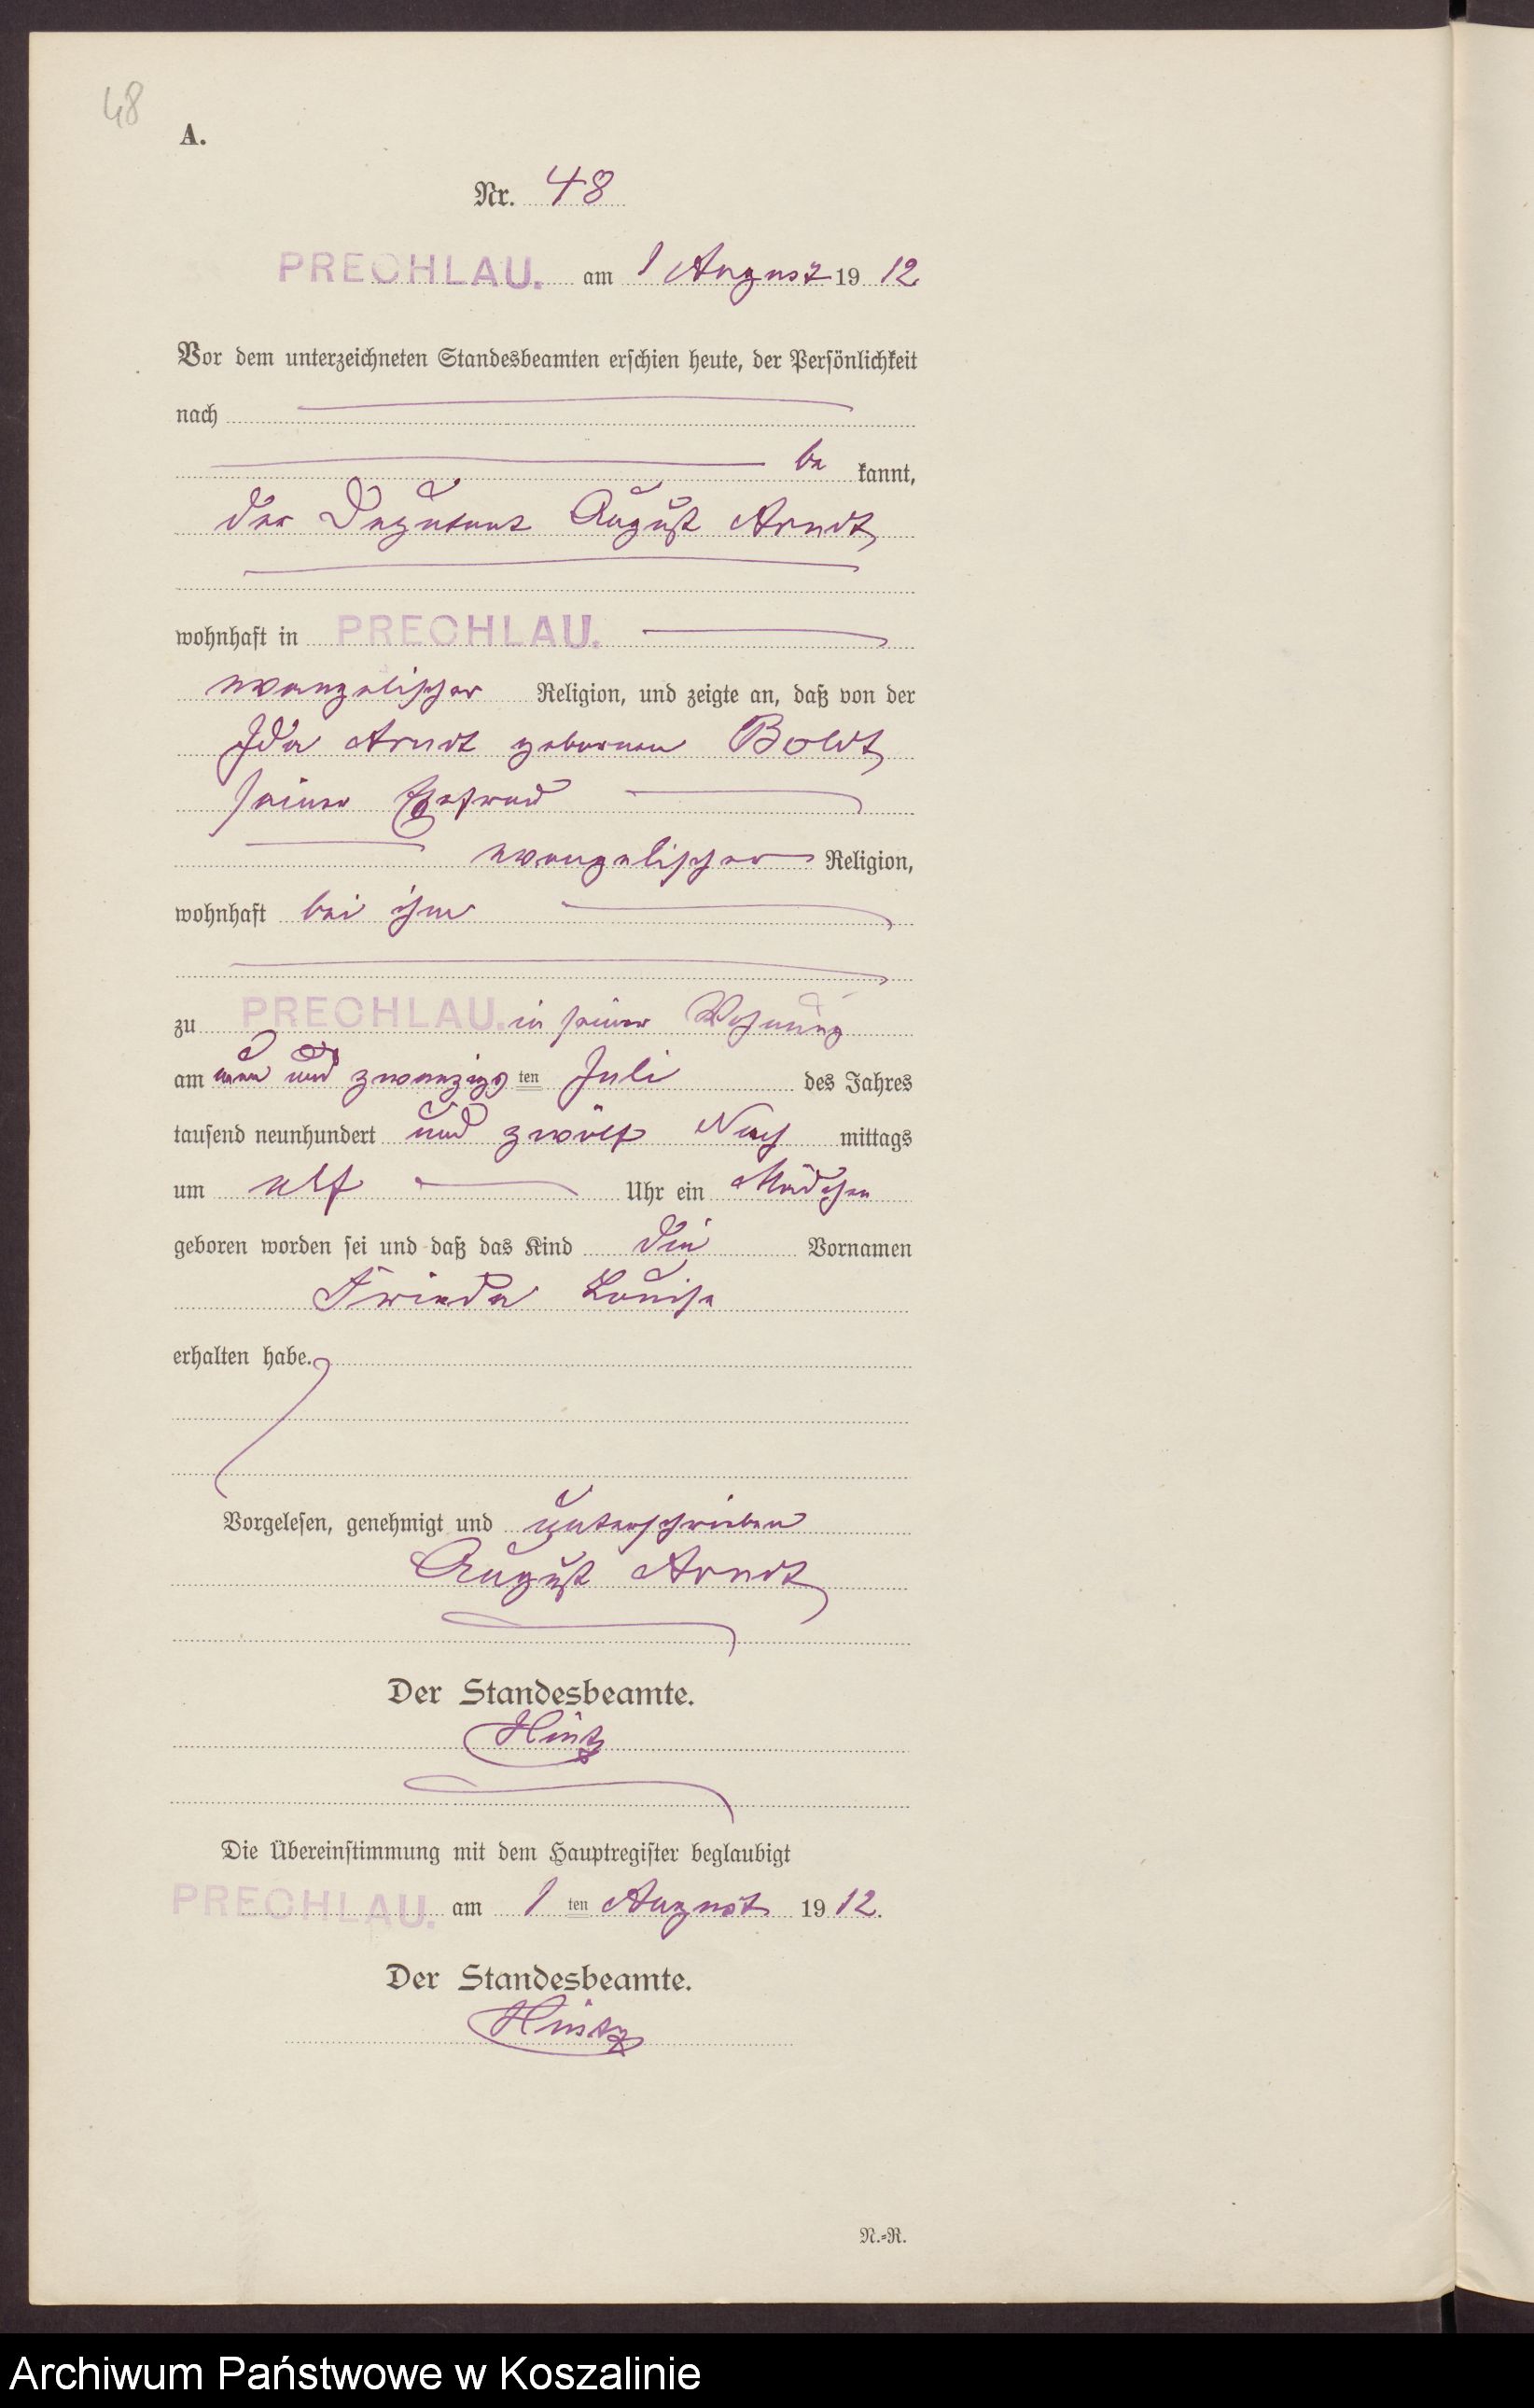 48
A.
Nr. 48
PRECHLAU. am 1 August 1912
Vor dem unterzeichneten Standesbeamten erschien heute, der Persönlichkeit
nach
be kannt,
der Deputant August Arndt,
wohnhaft in PRECHLAU.
evangelischer Religion, und zeigte an, daß von der
Ida Arndt geborenen Boldt,
seiner Ehefrau
evangelischer Religion,
wohnhaft bei ihm
zu PRECHLAU. in seiner Wohnung
am und zwanzigsten Juli des Jahres
tausend neunhundert und zwölf Nach mittags
um elf Uhr ein Mädchen
geboren worden sei und daß das Kind die Vornamen
Frieda Louise
erhalten habe.
Vorgelesen, genehmigt und unterschrieben
August Arndt
Der Standesbeamte.
Hintz
Die Übereinstimmung mit dem Hauptregister beglaubigt
PRECHLAU. am 1 ten August 1912.
Der Standesbeamte.
Hintz
N.=R.
Archiwum Państwowe w Koszalinie